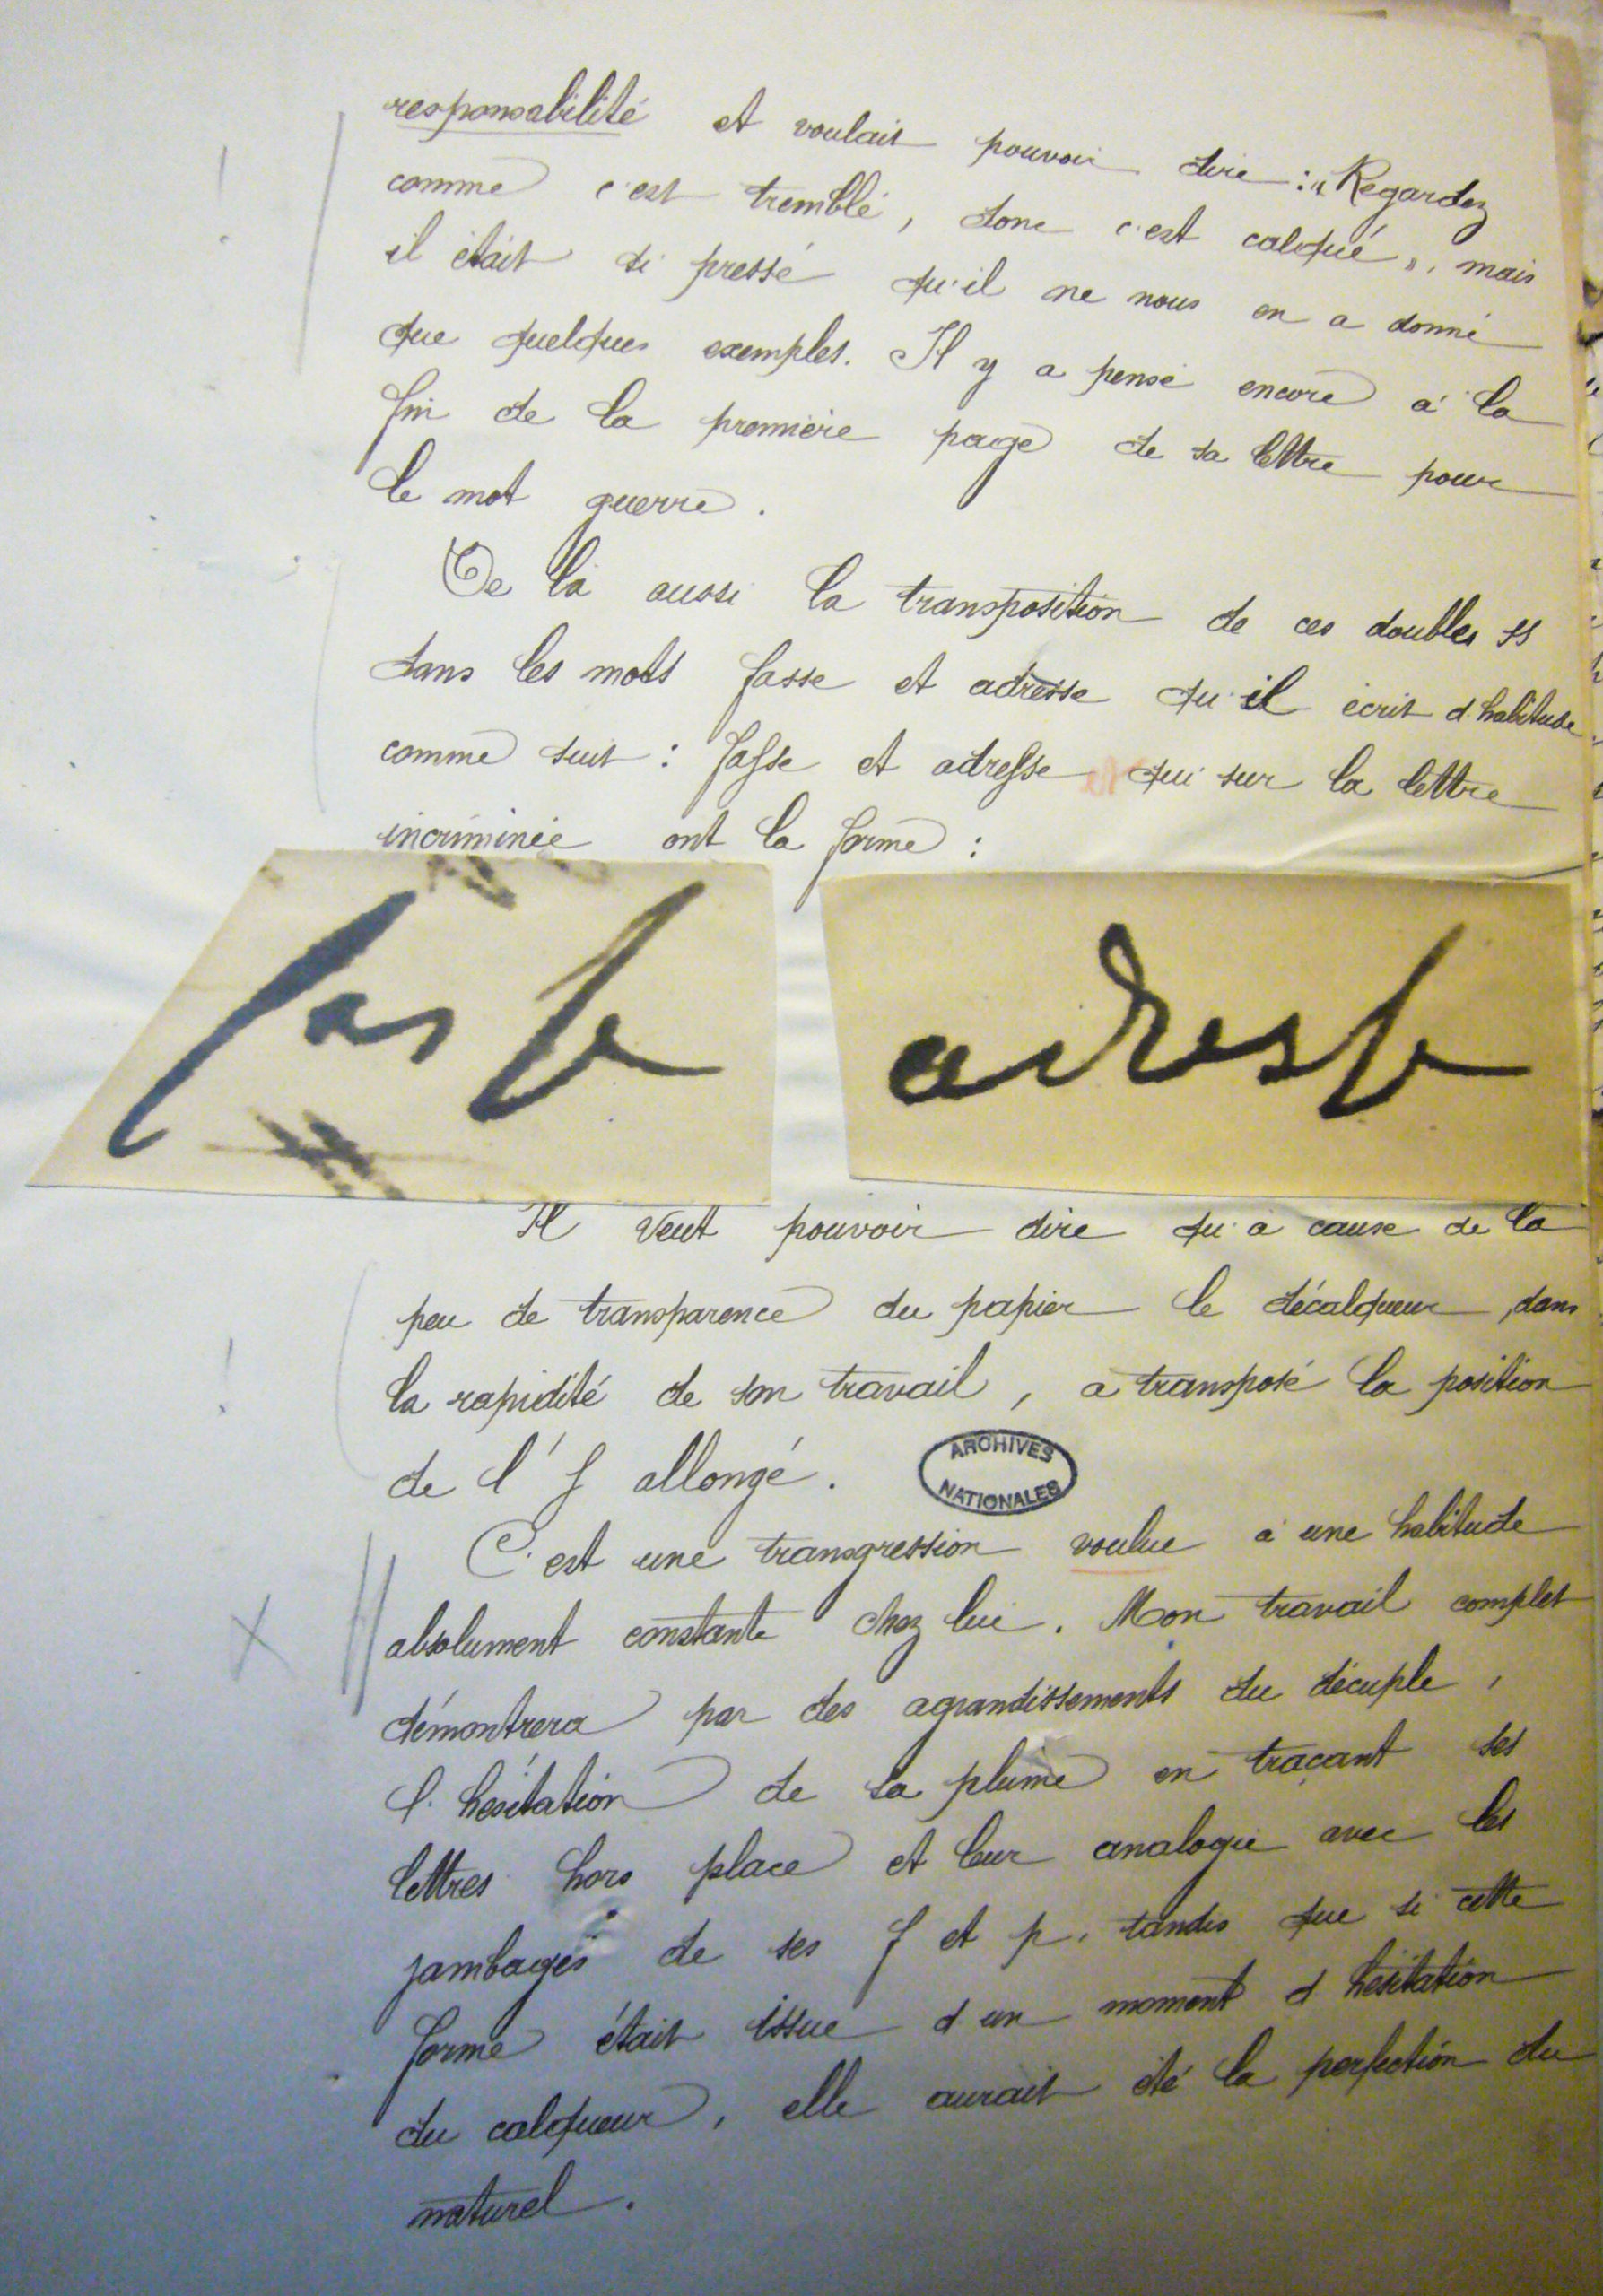 responsabilité et voulait pouvoir dire : „Regardez
comme c'est tremblé, donc c'est calqué", mais
il était si pressé qu'il ne nous en a donné
que quelques exemples. Il y a pensé encore à la
fin de la première page de sa lettre pour
le mot guerre.
De là aussi la transposition de ces doubles ss
dans les mots fasse et adresse qu'il écrit d'habitude
comme suit : faſse et adreſse qui sur la lettre
incriminée ont la forme :
!
fasſe adresſe
Il veut pouvoir dire qu'à cause de la
peu de transparence du papier le décalqueur, dans
la rapidité de son travail, a transposé la position
de l'ſ allongé.
!
ARCHIVES
NATIONALES
C'est une transgression voulue à une habitude
absolument constante chez lui. Mon travail complet
X
démontrera par des agrandissements du décuple,
l'hésitation de sa plume en traçant ses
lettres hors place et leur analogie avec les
jambages de ses f et p, tandis que si cette
forme était issue d'un moment d'hésitation
du calqueur, elle aurait été la perfection du
naturel.